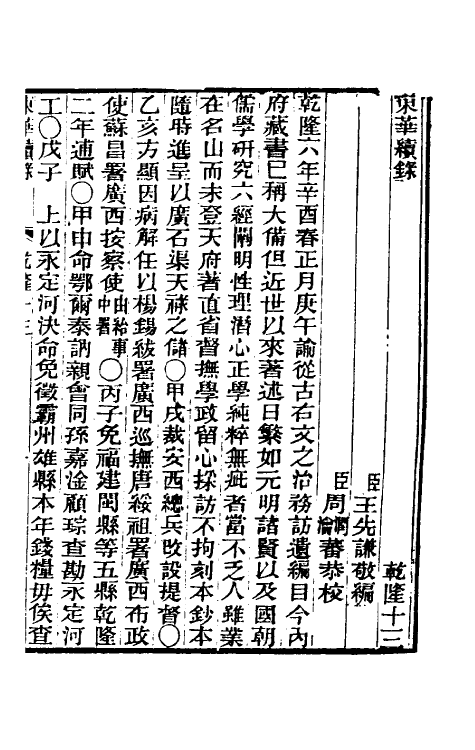 東華續錄
乾隆十三
臣王先謙敬編
臣周潤蕃周瀹蕃恭校
乾隆六年辛酉春正月庚午諭從古右文之治務訪遺編目今內
府藏書已稱大備但近世以來著述日繁如元明諸賢以及國朝
儒學研究六經闡明性理潛心正學純粹無疵者當不乏人雖業
在名山而未登天府著直省督撫學政留心採訪不拘刻本鈔本
隨時進呈以廣石渠天祿之儲〇甲戌裁安西總兵改設提督〇
乙亥方顯因病解任以楊錫紱署廣西巡撫唐綏祖署廣西布政
使蘇昌署廣西按察使由給事中署〇丙子免福建閩縣等五縣乾隆
二年逋賦〇甲申命鄂爾泰訥親會同孫嘉淦顧琮查勘永定河
工〇戊子　上以永定河決命免徵霸州雄縣本年錢糧毋俟查
東華續錄　乾隆十三